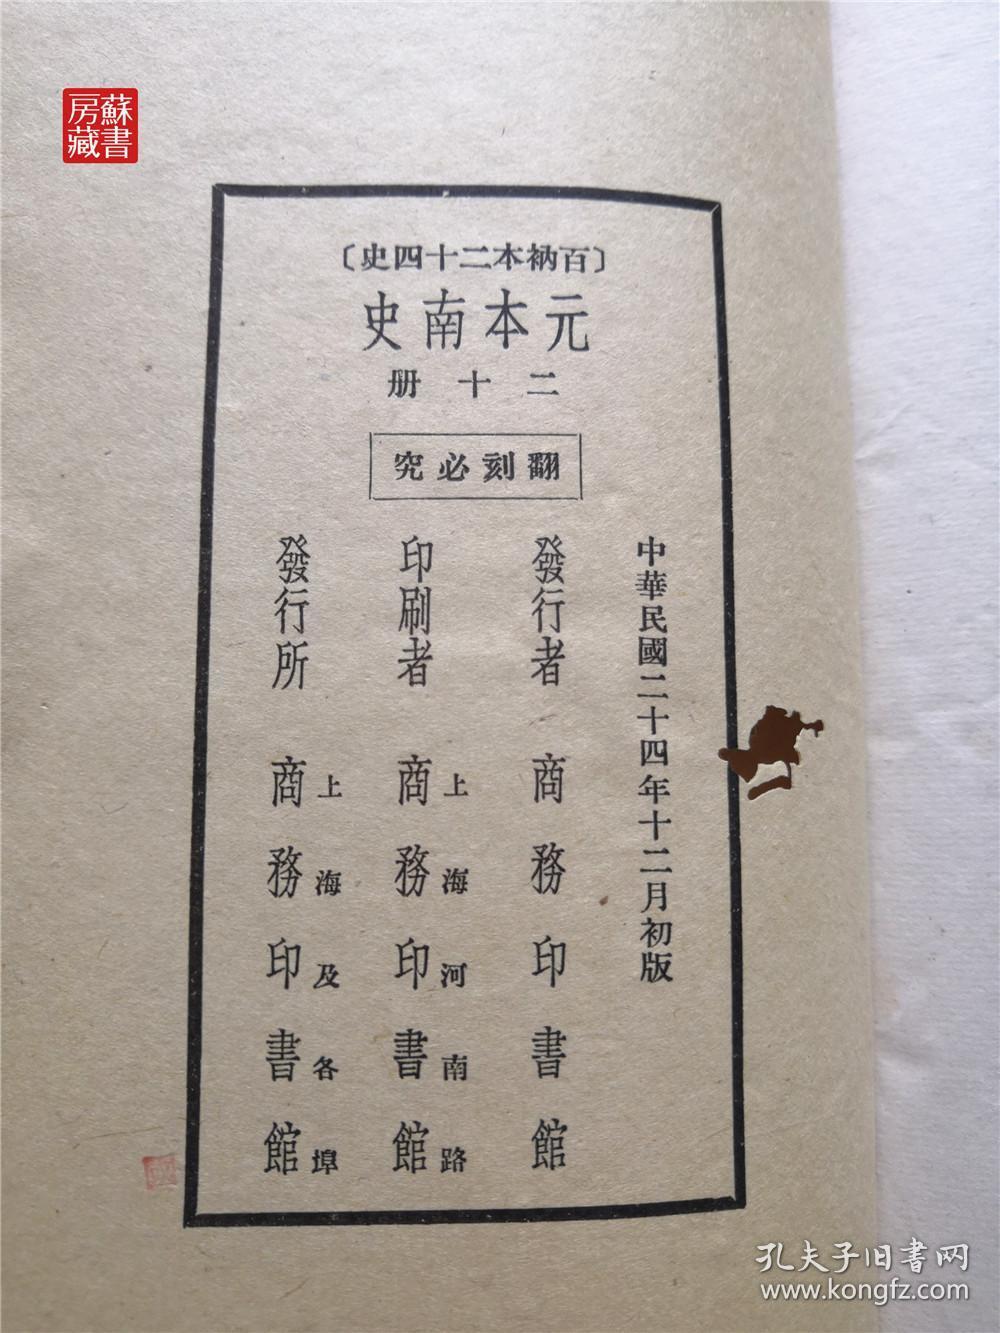 蘇書
房藏
〔百衲本二十四史〕
元本南史
二十册
翻刻必究
中華民國二十四年十二月初版
發行者 商務印書館
上海河南路
印刷者 商務印書館
上海及各埠
發行所 商務印書館
孔夫子旧書网
www.kongfz.com